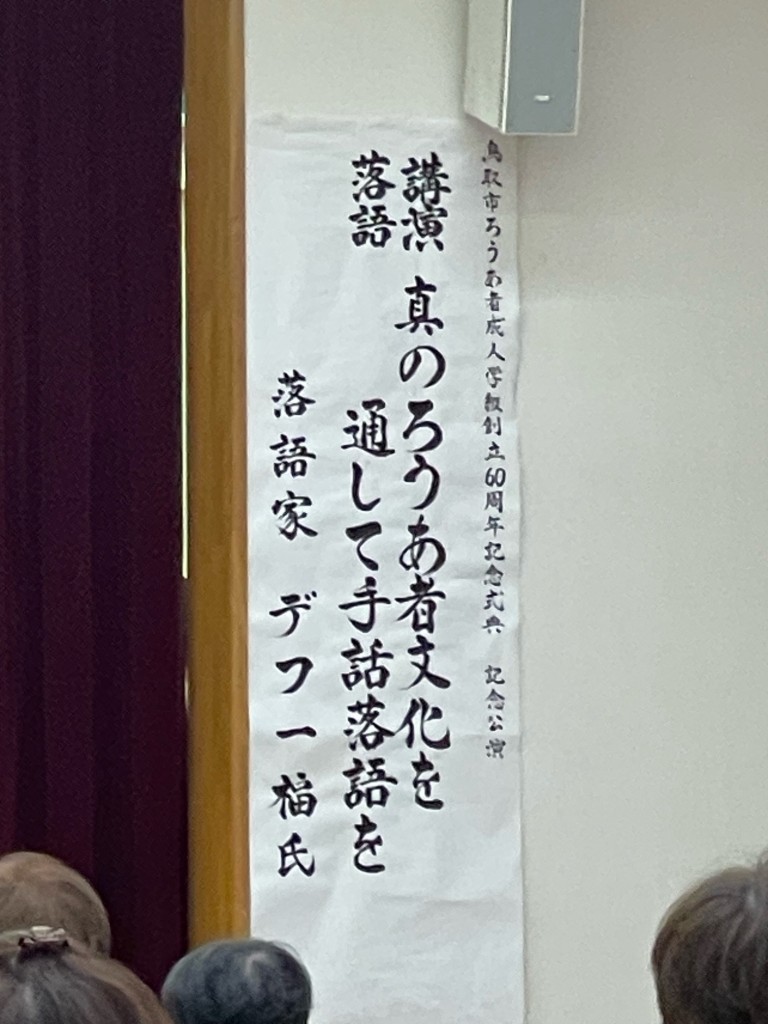 鳥取市ろうあ者成人学級創立60周年記念式典 記念公演
講演 真のろうあ者文化を
落語 通して手話落語を
落語家 デフ一福氏